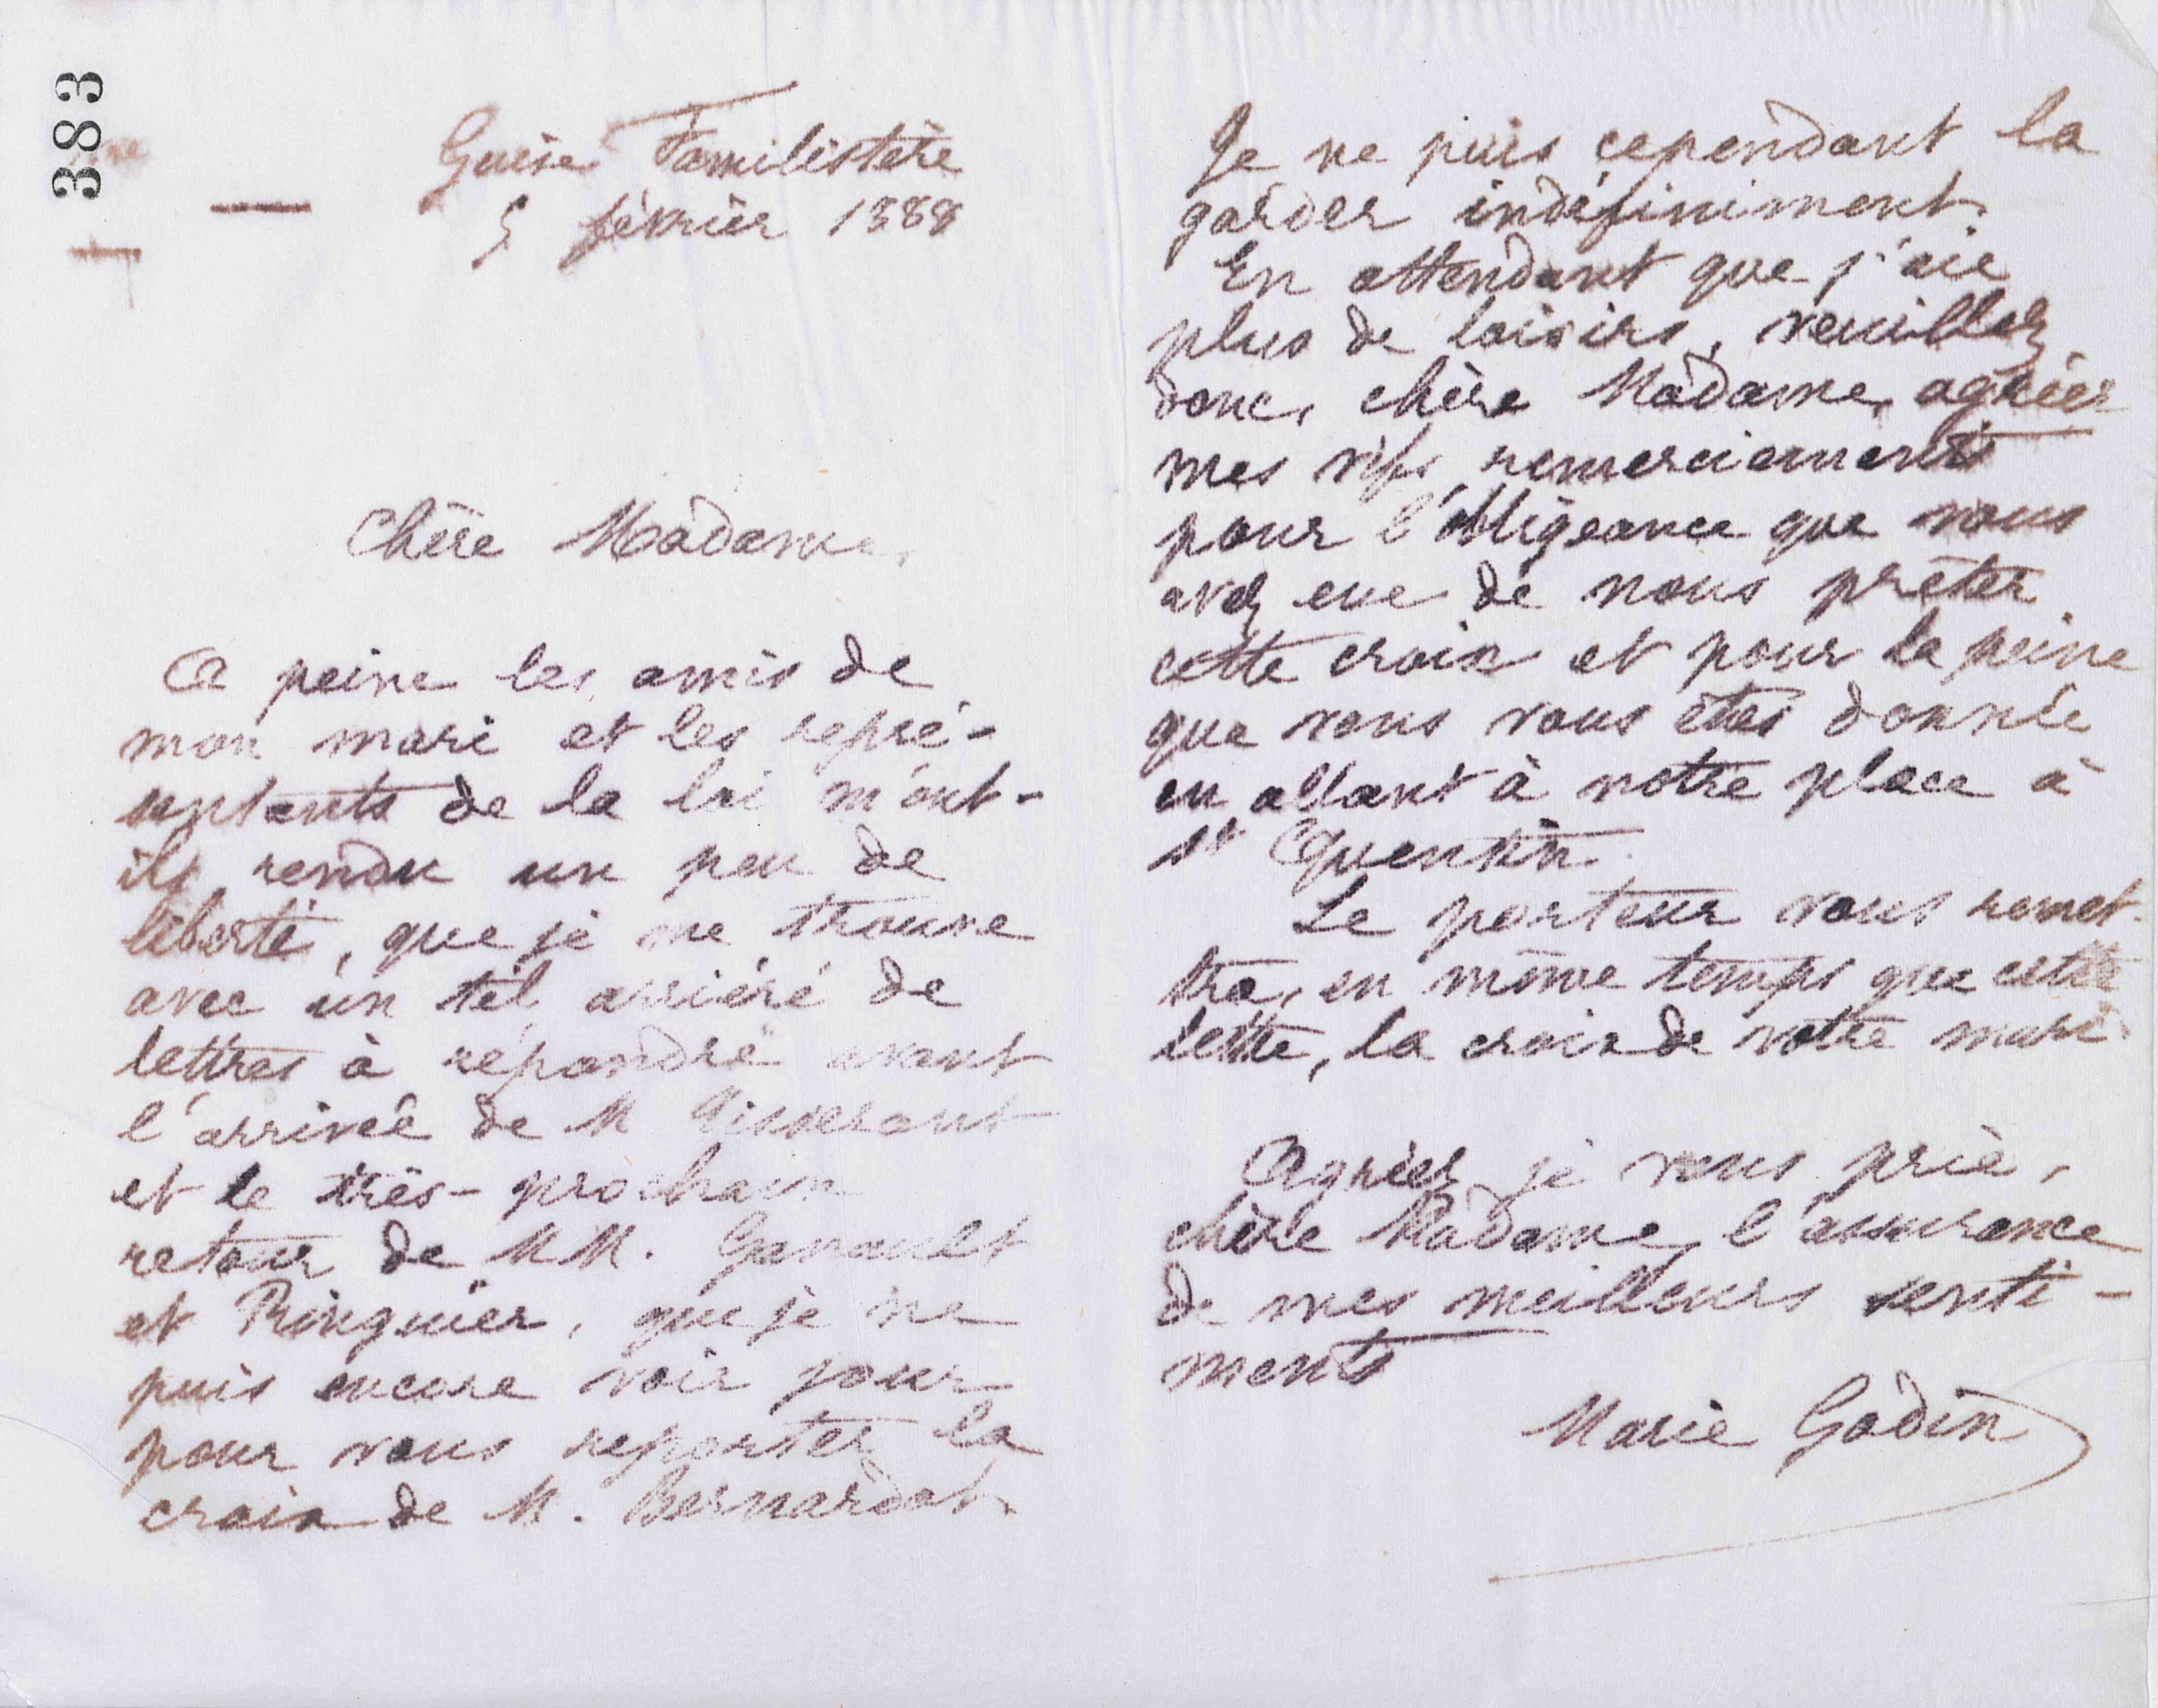 383
Guise Familistère
5 février 1888
Chère Madame,
A peine les amis de
mon mari et les repré-
sentants de la loi m'ont-
ils rendu un peu de
liberté, que je me trouve
avec un tel arriéré de
lettres à répondre avant
l'arrivée de M Tisserant
et le très-prochain
retour de MM. Ganault
et Ringuier, que je ne
puis encore voir jour
pour vous reporter la
croix de M. Bernardot.
Je ne puis cependant la
garder indéfiniment.
En attendant que j'aie
plus de loisirs, veuillez
donc, chère Madame, agréer
mes vifs remerciements
pour l'obligeance que vous
avez eue de nous prêter
cette croix et pour la peine
que vous vous êtes donnée
en allant à notre place à
St Quentin.
Le porteur vous remet-
tra, en même temps que cette
lettre, la croix de votre mari.
Agréez je vous prie,
chère Madame, l'assurance
de mes meilleurs senti-
ments
Marie Godin